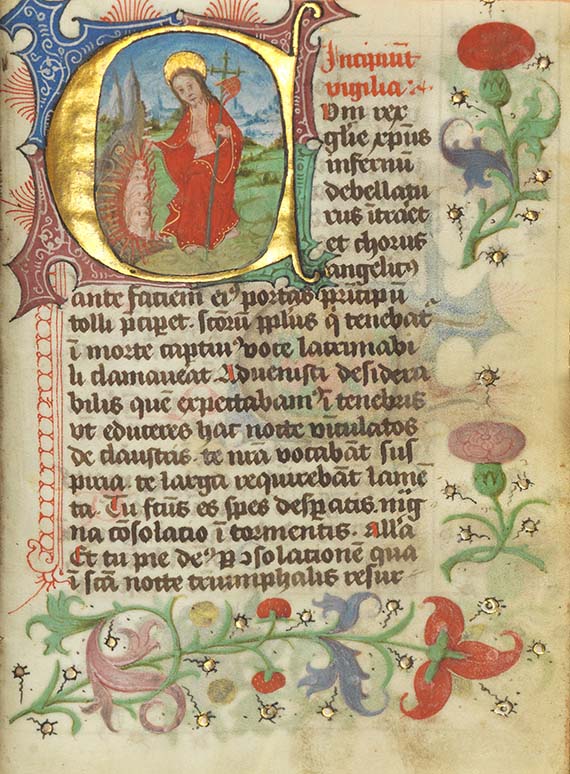 Incipiūt
vigilia
Cvm rex
glīe xp̄us
infernū
debellatu
rus ītraet
et chorus
angelicꝯ
ante faciem eiꝯ portas prīcipū
tolli p̄cip̄et. sctōrum pp̄lus q̄ tenebat᷑
ī morte captiuꝯ voce lacrimabi
li clamaueat Aduenisti desidera
bilis quē expectabamꝯ ī tenebris
vt educeres hac nocte vīculatos
de claustris. te nr̄a vocabāt sus
piria te larga requirebāt lamē
ta. Tu fc̄us es spes desꝑatis. mag
na cōsolacio ī tormentis. Alla
Et tu pie deꝯ ꝑ ꝯsolationē quā
ī sc̄a nocte triumphalis resur